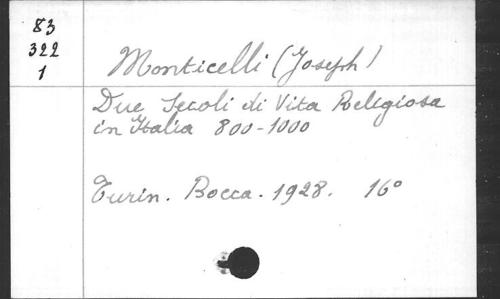 83
322
1
Monticelli (Joseph)
Due Secoli di Vita Religiosa
in Italia 800-1000
Turin. Bocca. 1928. 16°